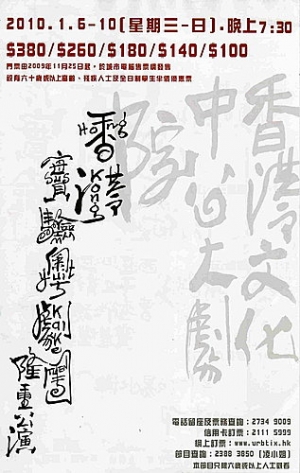 2010.1.6-10(星期三-日).晚上7:30
$380/$260/$180/$140/$100
門票由2009年11月25日起，於城市電腦售票處發售
設有六十歲或以上高齡、殘疾人士及全日制學生半價優惠票
香港文化
中心大劇
院
Hong Kong
香港
劇團
隆重公演
電話留座及票務查詢：2734 9009
信用卡訂票：2111 5999
網上訂票：www.urbtix.hk
節目查詢：2388 3850（凌小姐）